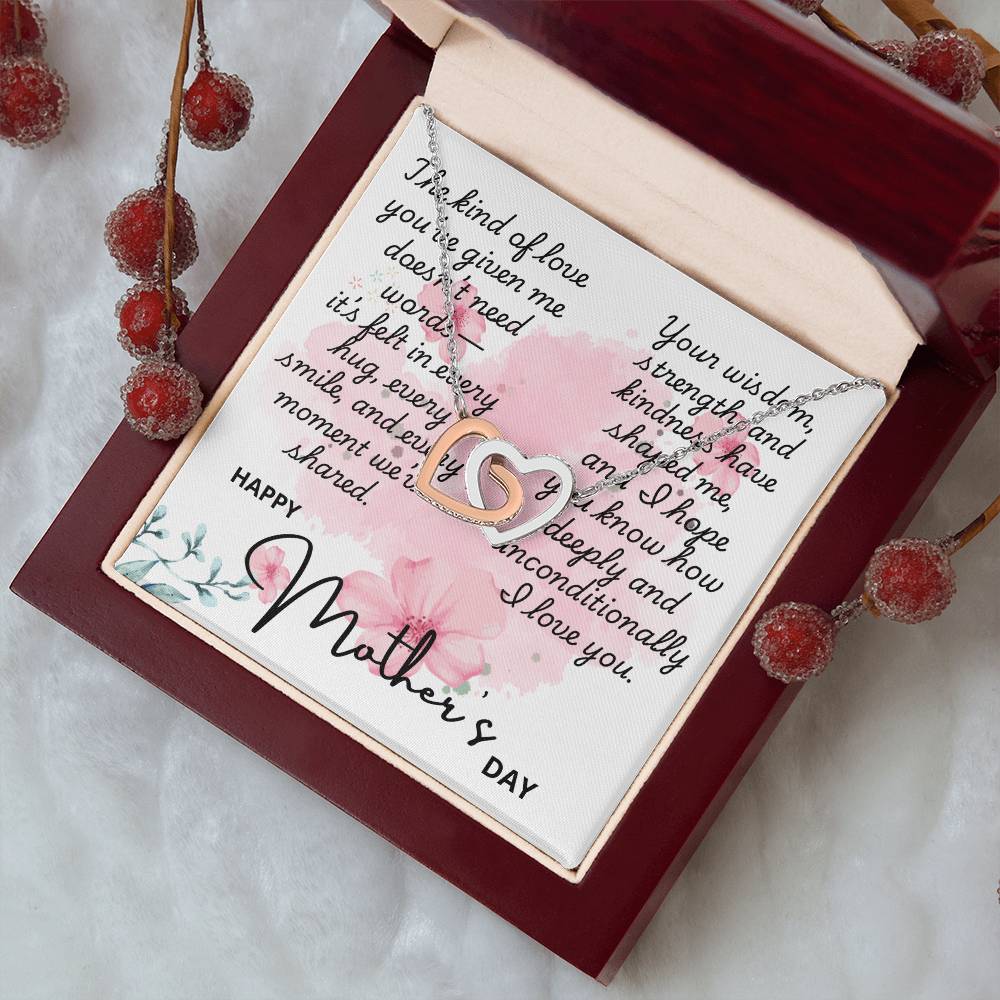 The kind of love
you've given me
doesn't need
words—
it's felt in every
hug, every
smile, and every
moment we've
shared.
Your wisdom,
strength, and
kindness have
shaped me,
and I hope
you know how
deeply and
unconditionally
I love you.
HAPPY
Mother's
DAY